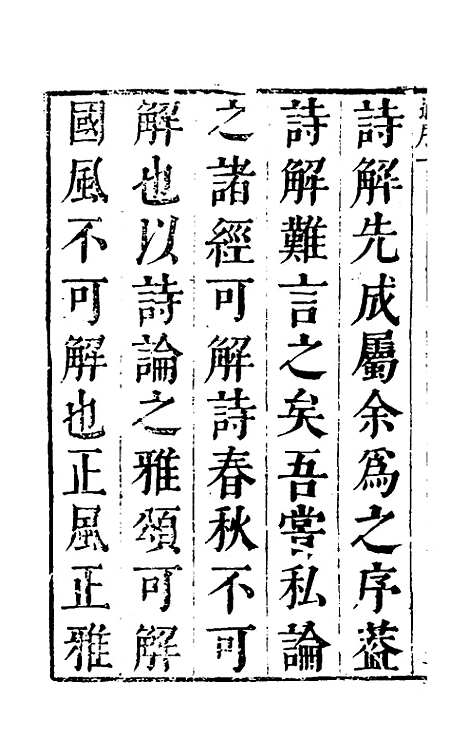 詩解先成屬余爲之序葢
詩解難言之矣吾嘗私論
之諸經可解詩春秋不可
解也以詩論之雅頌可解
國風不可解也正風正雅